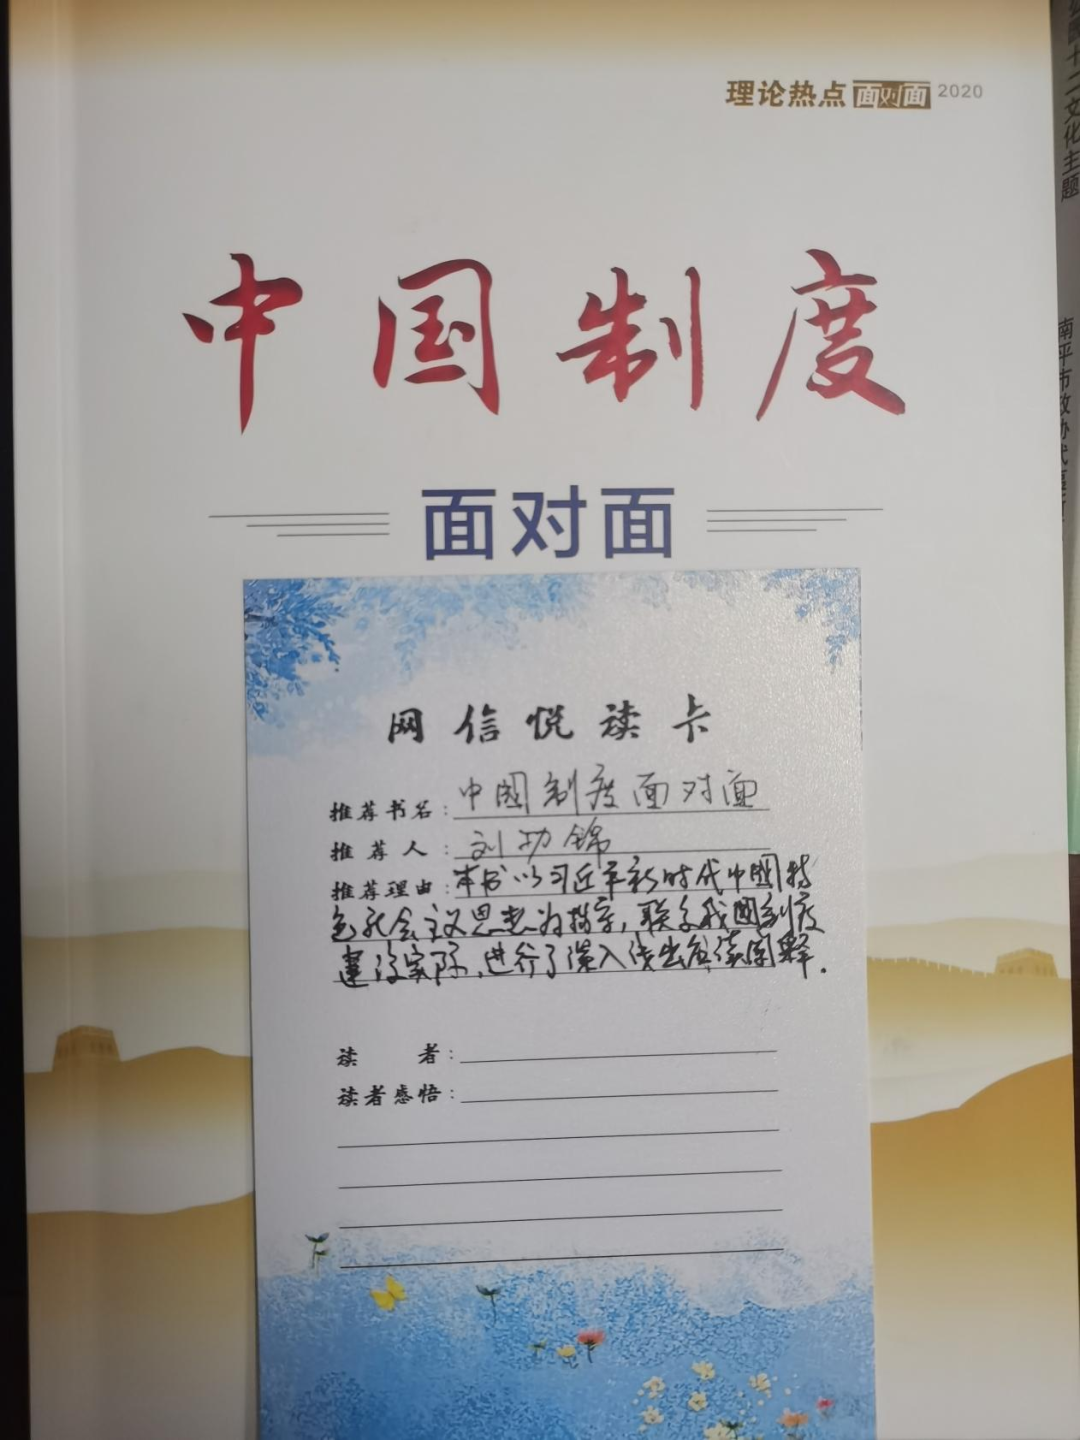 理论热点 面对面 2020
中国制度
面对面
网信悦读卡
推荐书名：中国制度面对面
推荐人：刘功锦
推荐理由：本书以习近平新时代中国特
色社会主义思想为指导，联系我国制度
建设实际，进行了深入浅出解读阐释.
读者：
读者感悟：
十二文化主题
南平市政协